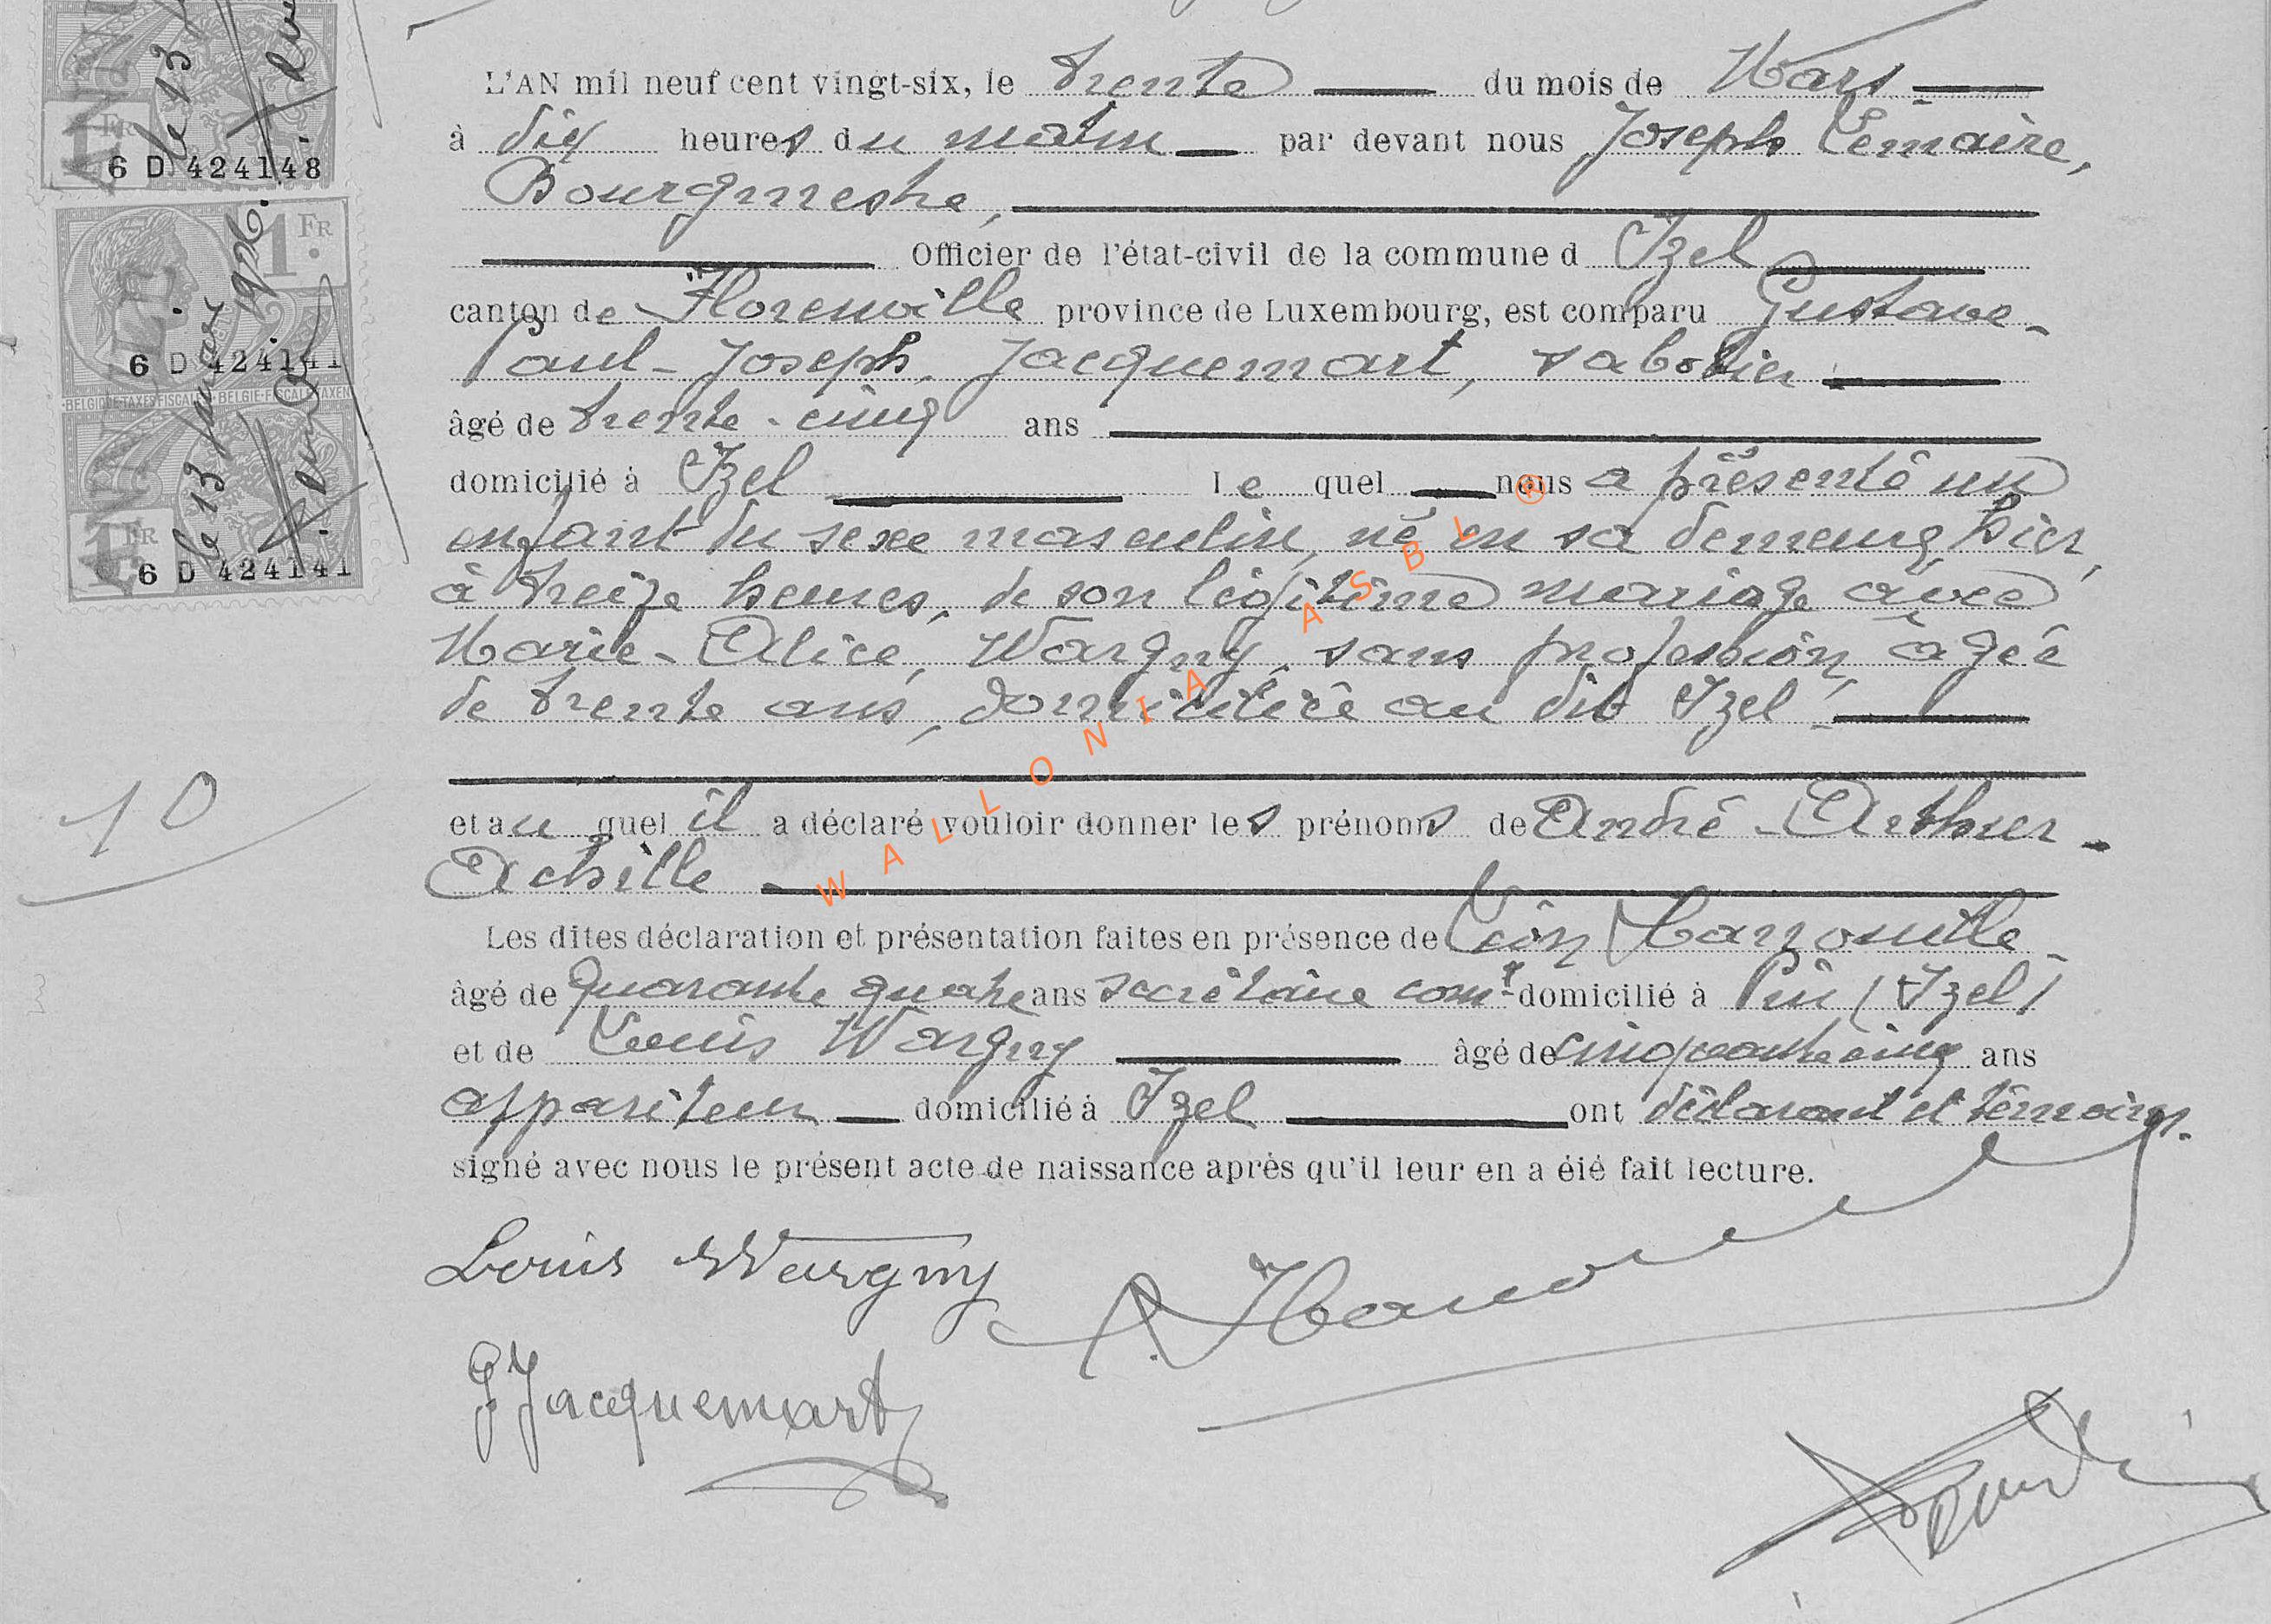 L'AN mil neuf cent vingt-six, le trente du mois de Mars
à dix heures du matin par devant nous Joseph Lemaire,
Bourgmestre,
Officier de l'état-civil de la commune d Izel
canton de Florenville province de Luxembourg, est comparu Gustave-
Paul-Joseph, Jacquemart, sabotier
âgé de trente-cinq ans
domicilié à Izel Le quel nous a présenté un
enfant du sexe masculin, né en sa demeure, hier,
à treize heures, de son légitime mariage avec
Marie-Alice, Wargny, sans profession, âgée
de trente ans, domiciliée au dit Izel
et au quel il a déclaré vouloir donner les prénoms de André-Arthur-
Achille
Les dites déclaration et présentation faites en présence de Léon
âgé de quarante quatre ans secrétaire coml domicilié à Pin (Izel)
et de Louis Wargny âgé de cinquante cinq ans
appariteur domicilié à Izel ont déclarant et témoins
signé avec nous le présent acte de naissance après qu'il leur en a été fait lecture.
Louis Wargny
G Jacquemart
10
6 D 424148
1 FR
6 D 424141
BELGIQUE-TAXES FISCALES - BELGIE-FISCALE TAXEN
le 13 1926.
1 FR
6 D 424141
WALLONIA ASBL ®